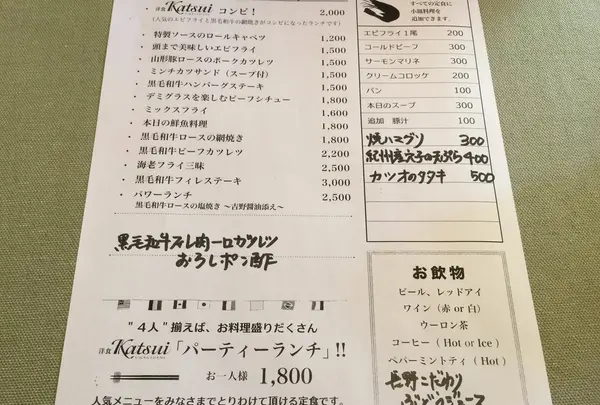 洋食 Katsui コンビ! 2,000
(人気のエビフライと黒毛和牛の網焼きがコンビになったランチです)
・特製ソースのロールキャベツ 1,200
・頭まで美味しいエビフライ 1,500
・山形豚ロースのポークカツレツ 1,500
・ミンチカツサンド（スープ付） 1,500
・黒毛和牛ハンバーグステーキ 1,500
・デミグラスを楽しむビーフシチュー 1,800
・ミックスフライ 1,600
・本日の鮮魚料理 1,800
・黒毛和牛ロースの網焼き 1,800
・黒毛和牛ビーフカツレツ 2,200
・海老フライ三昧 2,500
・黒毛和牛フィレステーキ 3,000
・パワーランチ 2,500
黒毛和牛ロースの塩焼き ～吉野醤油添え～
黒毛和牛フィレ肉一口カツレツ
おろしポン酢
"４人" 揃えば、お料理盛りだくさん
洋食 Katsui「パーティーランチ」!!
お一人様 1,800
人気メニューをみなさまでとりわけて頂ける定食です。
すべての定食に
小皿料理を
追加できます。
エビフライ1尾 200
コールドビーフ 300
サーモンマリネ 300
クリームコロッケ 200
パン 100
本日のスープ 300
追加 豚汁 100
焼ハマグリ 300
紀州産穴子の天ぷら 400
カツオのタタキ 500
お飲物
ビール、レッドアイ
ワイン（赤 or 白）
ウーロン茶
コーヒー（ Hot or Ice ）
ペパーミントティ（ Hot ）
長野こだわり
ぶどうジュース